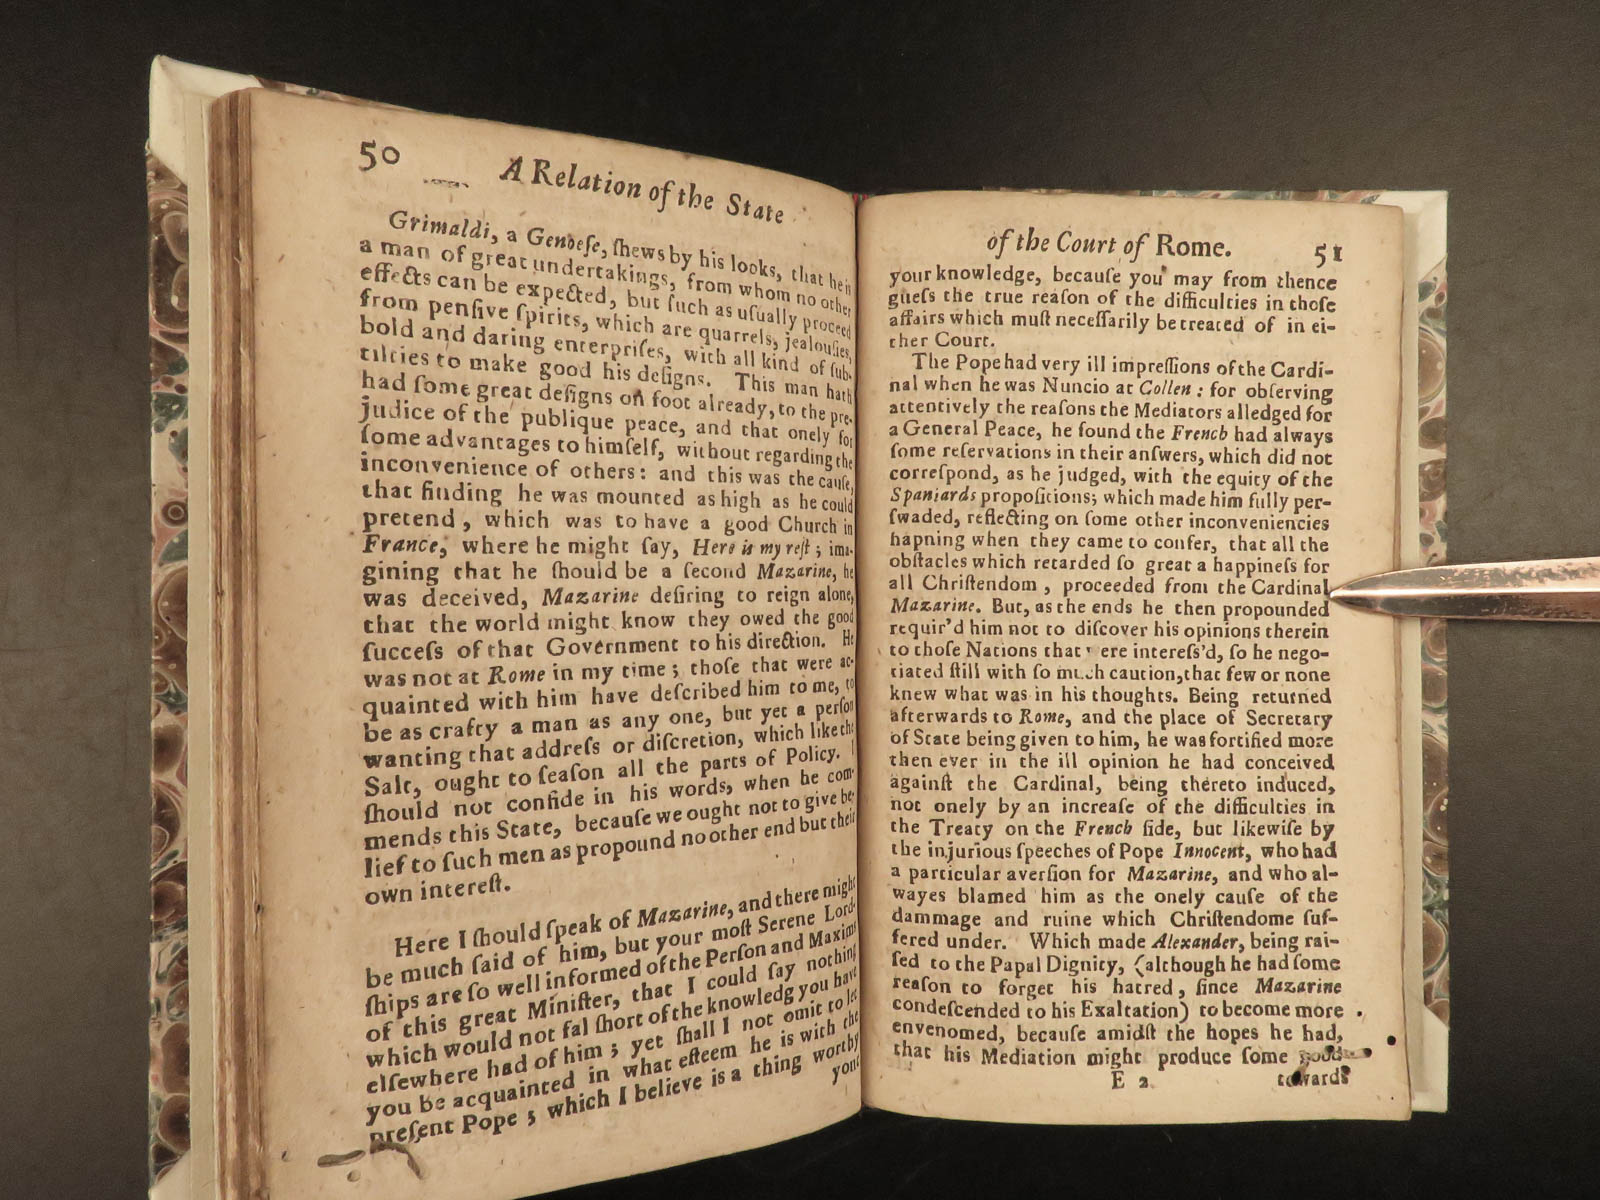 50
A Relation of the State
Grimaldi, a Genoese, ſhews by his looks, that he is
a man of great undertakings, from whom no other
effects can be expected, but ſuch as uſually proceed
from penſive ſpirits, which are quarrels, jealouſies,
bold and daring enterpriſes, with all kind of ſub-
tilties to make good his deſigns. This man hath
had ſome great deſigns on foot already, to the pre-
judice of the publique peace, and that onely for
ſome advantages to himſelf, without regarding the
inconvenience of others: and this was the cauſe,
that finding he was mounted as high as he could
pretend, which was to have a good Church in
France, where he might ſay, Here is my reſt; ima-
gining that he ſhould be a ſecond Mazarine, he
was deceived, Mazarine deſiring to reign alone,
that the world might know they owed the good
ſucceſs of that Government to his direction. He
was not at Rome in my time; thoſe that were ac-
quainted with him have deſcribed him to me, to
be as crafty a man as any one, but yet a perſon
wanting that addreſs or diſcretion, which like the
Salt, ought to ſeaſon all the parts of Policy. I
ſhould not confide in his words, when he com-
mends this State, becauſe we ought not to give be-
lief to ſuch men as propound no other end but their
own intereſt.
Here I ſhould ſpeak of Mazarine, and there might
be much ſaid of him, but your moſt Serene Lord-
ſhips are ſo well informed of the Perſon and Maxims
of this great Miniſter, that I could ſay nothing
which would not fal ſhort of the knowledg you have
elſewhere had of him; yet ſhall I not omit to let
you be acquainted in what eſteem he is with the
preſent Pope; which I believe is a thing worthy
your
of the Court of Rome.
51
your knowledge, becauſe you may from thence
gueſs the true reaſon of the difficulties in thoſe
affairs which muſt neceſſarily be treated of in ei-
ther Court.
The Pope had very ill impreſſions of the Cardi-
nal when he was Nuncio at Collen: for obſerving
attentively the reaſons the Mediators alledged for
a General Peace, he found the French had always
ſome reſervations in their anſwers, which did not
correſpond, as he judged, with the equity of the
Spaniards propoſitions; which made him fully per-
ſwaded, reflecting on ſome other inconveniencies
hapning when they came to confer, that all the
obſtacles which retarded ſo great a happineſs for
all Chriſtendom, proceeded from the Cardinal
Mazarine. But, as the ends he then propounded
requir'd him not to diſcover his opinions therein
to thoſe Nations that ere intereſs'd, ſo he nego-
tiated ſtill with ſo much caution, that few or none
knew what was in his thoughts. Being returned
afterwards to Rome, and the place of Secretary
of State being given to him, he was fortified more
then ever in the ill opinion he had conceived
againſt the Cardinal, being thereto induced,
not onely by an increaſe of the difficulties in
the Treaty on the French ſide, but likewiſe by
the injurious ſpeeches of Pope Innocent, who had
a particular averſion for Mazarine, and who al-
wayes blamed him as the onely cauſe of the
dammage and ruine which Chriſtendome ſuf-
fered under. Which made Alexander, being rai-
ſed to the Papal Dignity, (although he had ſome
reaſon to forget his hatred, ſince Mazarine
condeſcended to his Exaltation) to become more
envenomed, becauſe amidſt the hopes he had,
that his Mediation might produce ſome good
E 2
towards